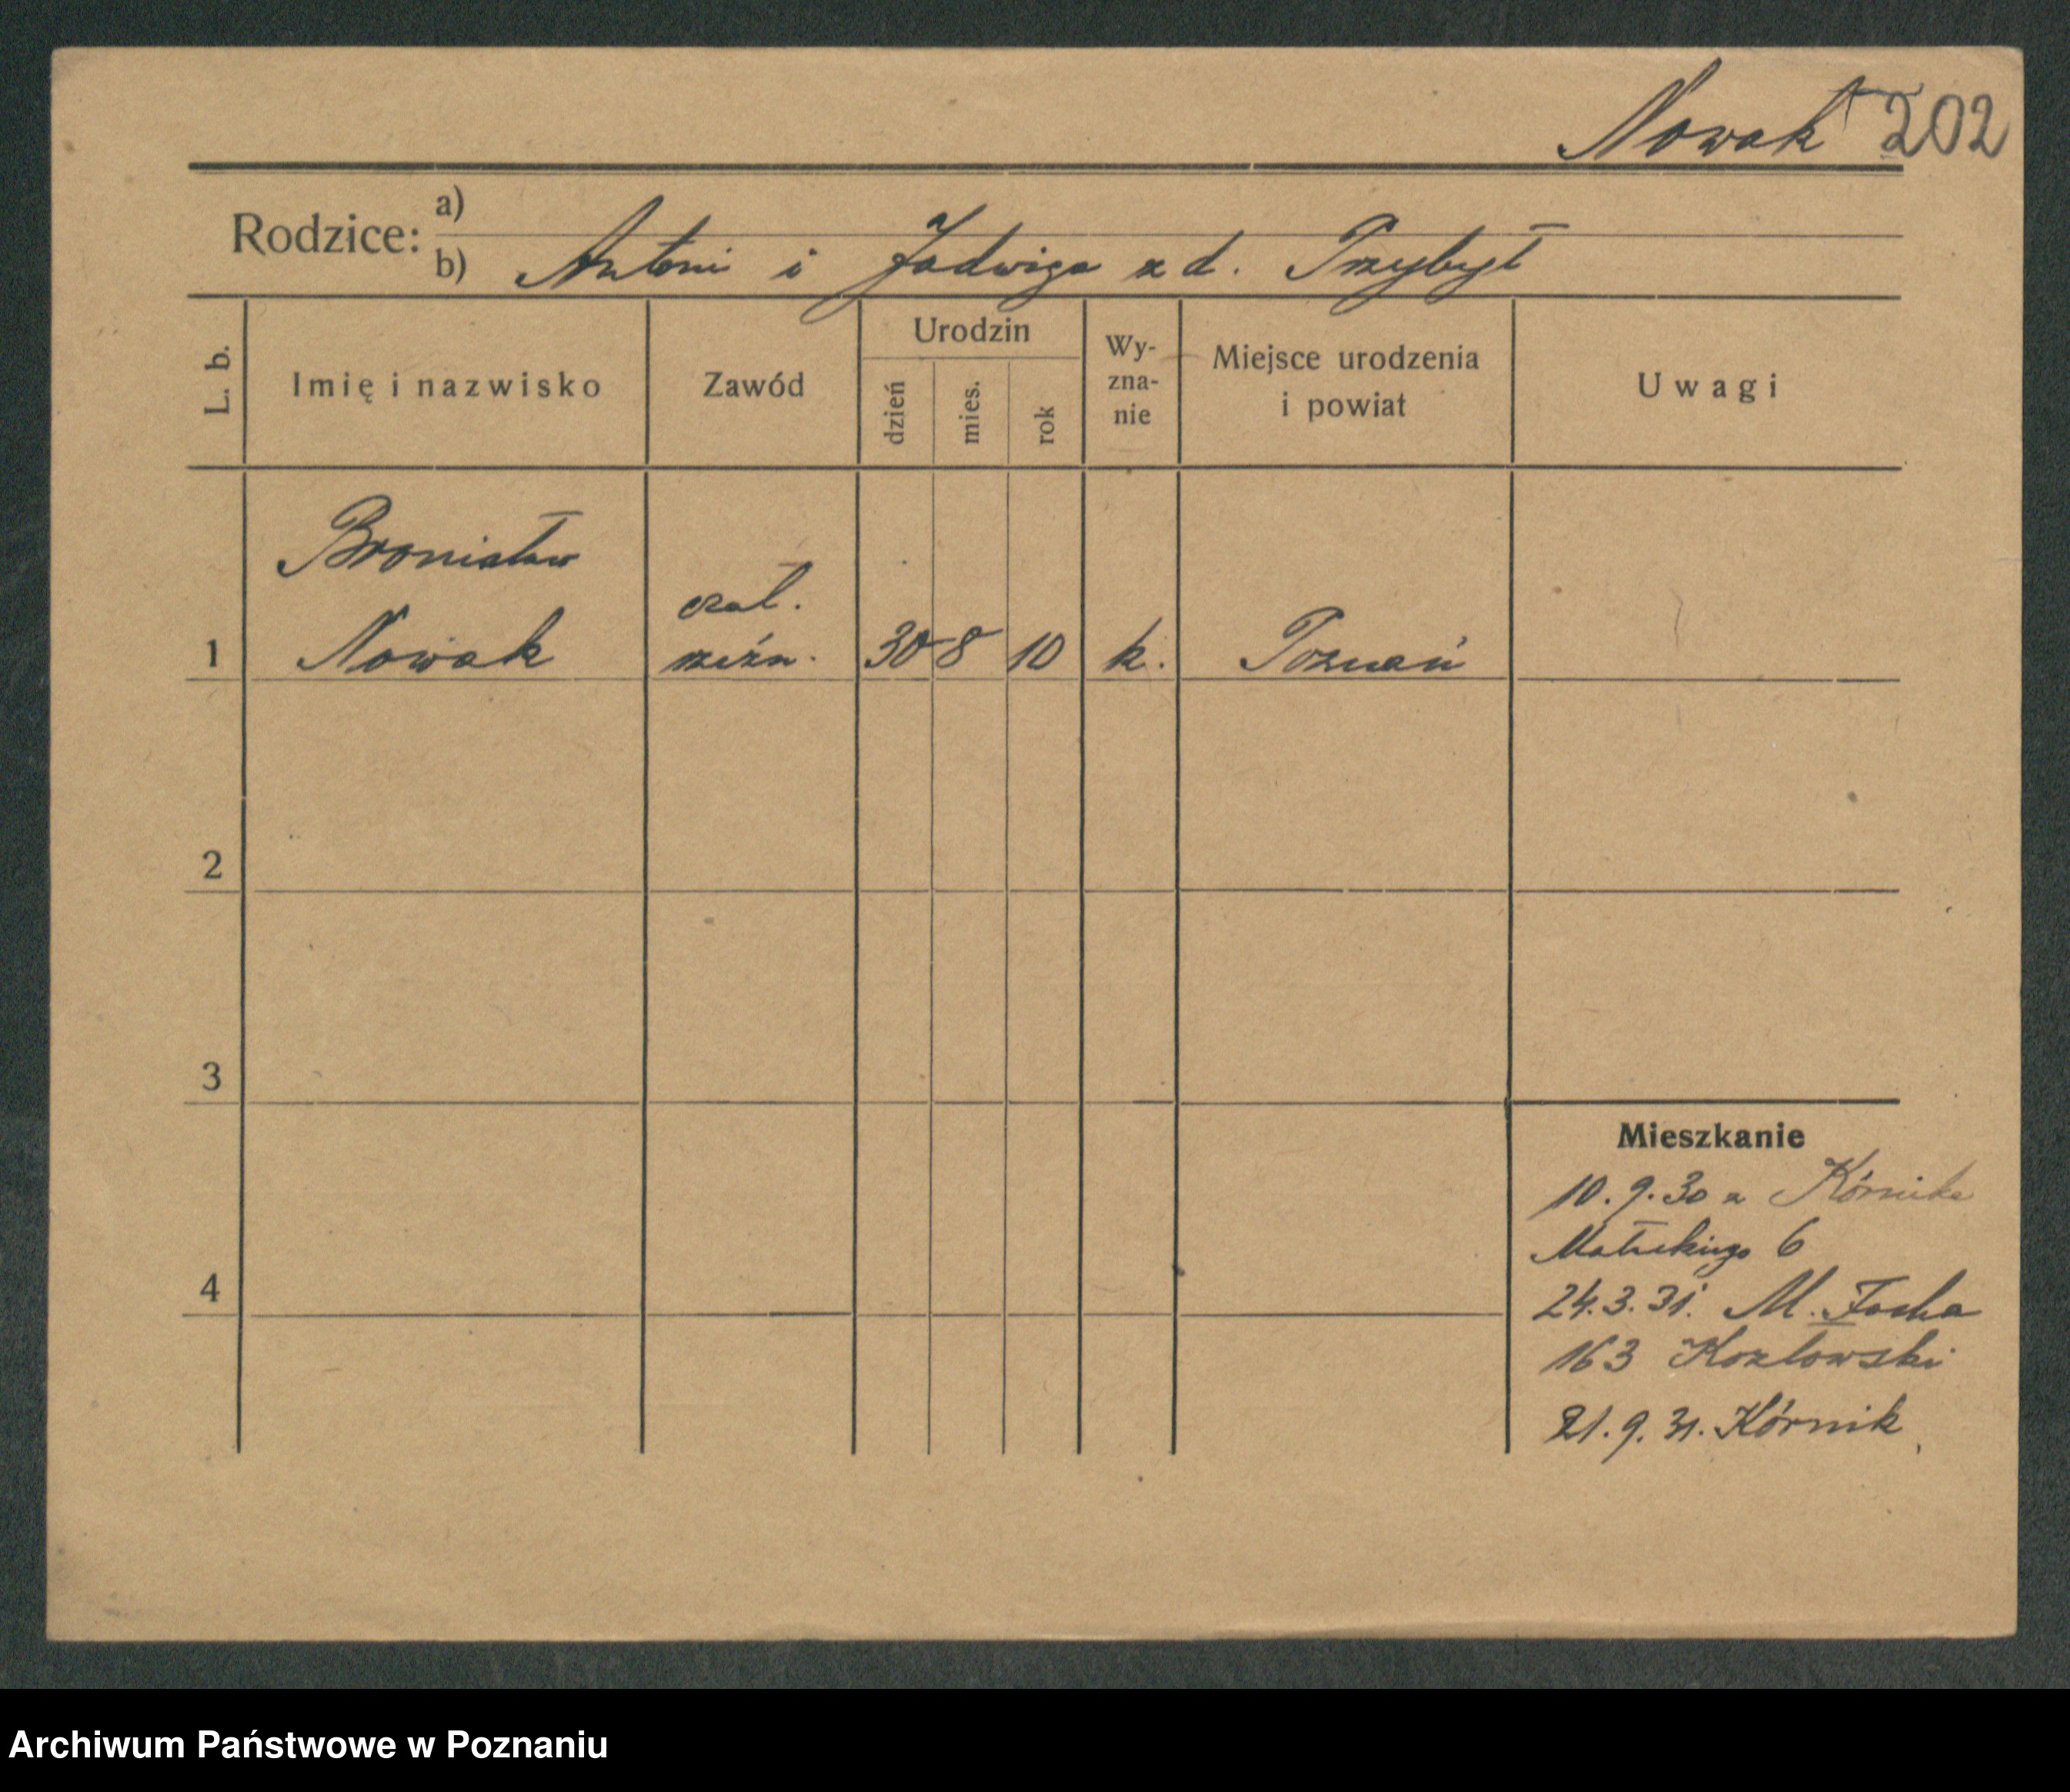 Nowak 202
Rodzice: a)
b) Antoni i Jadwiga z d. Przybył
L. b.
Imię i nazwisko
Zawód
Urodzin
dzień
mies.
rok
Wy-
zna-
nie
Miejsce urodzenia
i powiat
Uwagi
Bronisław
czel.
1 Nowak rzeźn. 30 8 10 k. Poznań
2
3
Mieszkanie
10.9.30 z Kórnika
Małeckiego 6
4
24.3.31. M. Focha
163 Kozłowski
21.9.31. Kórnik
Archiwum Państwowe w Poznaniu